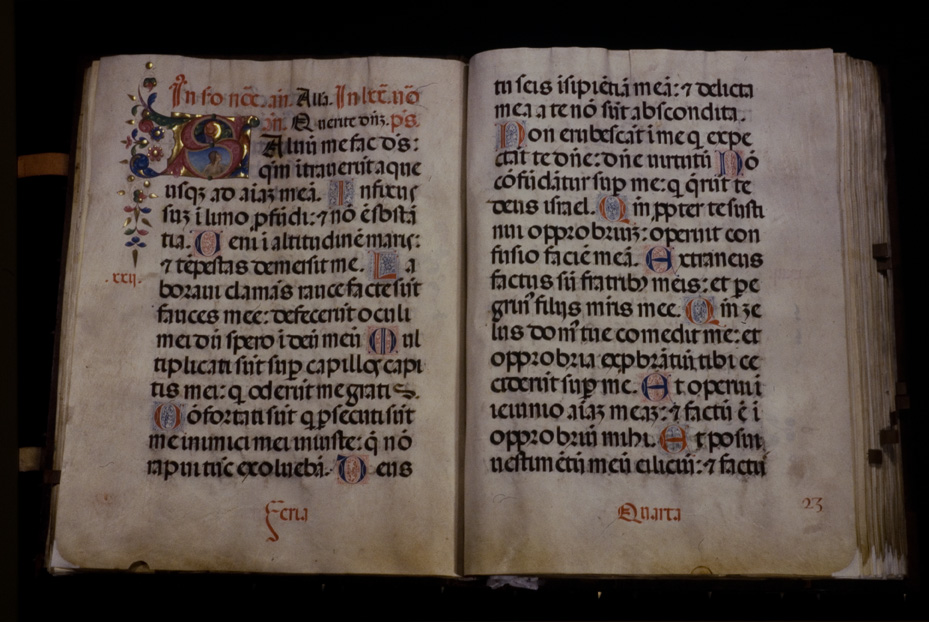 In fo nr̄e. an̄. Alla. In lrē. nō
an̄. Querite dn̄z. ps.
Saluū me fac ds̄:
qm̄ ītraverūt aque
usqz ad aīaz meā. Infixus
suz ī limo ꝓfūdi: ⁊ nō ē sbstā
tia. Veni ī altitudinē maris:
⁊ tēpestas demersit me. La
boravi clamās rauce facte sūt
fauces mee: defecerūt oculi
mei dū spero ī deū meū Mul
tiplicati sūt suꝑ capillos capi
tis mei: q̄ oderūt me gratis.
Cōfortati sūt q̄ ꝑsecuti sūt
me inimici mei iniuste: q̄ nō
rapui tūc exoluebā. Deus
xxij.
Feria
tu scis īsipiētiā meā: ⁊ delicta
mea a te nō sūt abscondita.
Non erubescāt ī me q̄ expe
ctāt te dn̄e: dn̄e uirtutū Nō
cōfūdātur suꝑ me: q̄ q̄rūt te
deus israel. Qm̄ ꝓpter te susti
nui opprobriuz: operuit con
fusio faciē meā. Extraneus
factus sū fratribꝫ meis: et ꝑe
grin' filijs mr̄is mee. Qm̄ ze
lus dom' tue comedit me: et
opprobria expbrātiū tibi ce
ciderūt suꝑ me. Et operui ī
ieiunio aīaz meaz: ⁊ factū ē ī
opprobriū mihi. Et posui
uestimētū meū ciliciū: ⁊ factu'
Quarta
23